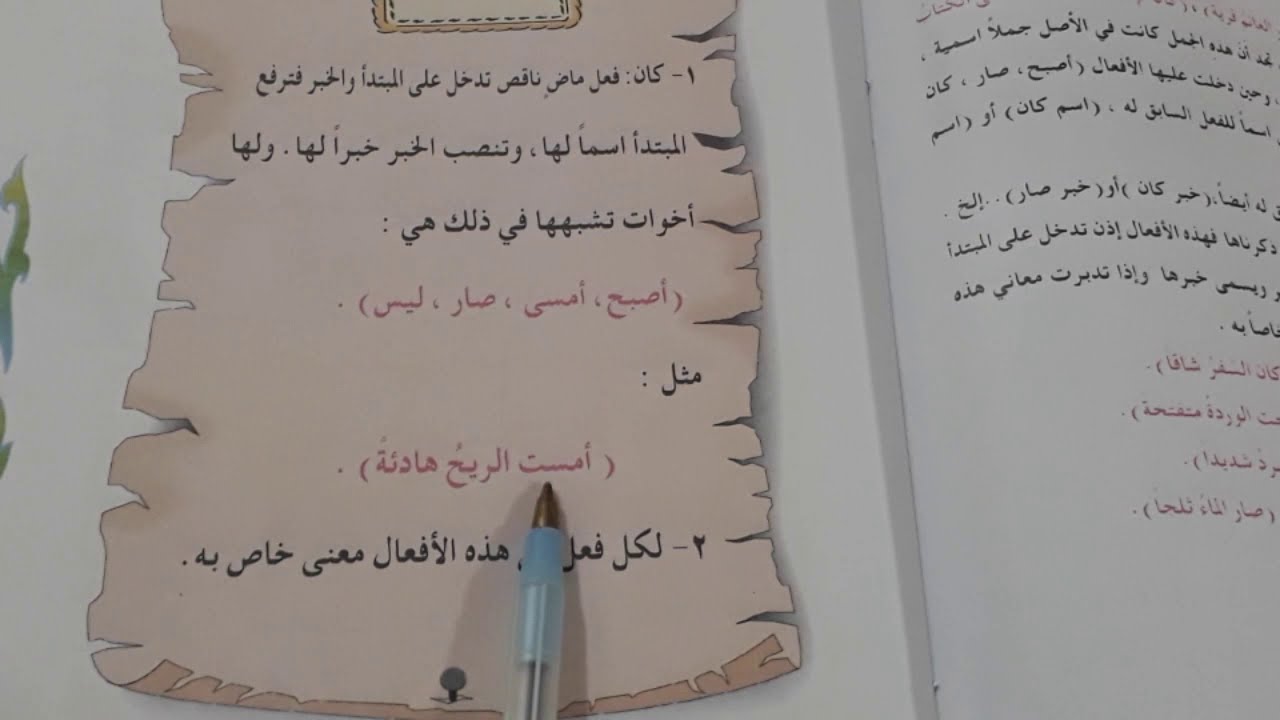 ١- كان: فعل ماضٍ ناقص تدخل على المبتدأ والخبر فترفع
المبتدأ اسماً لها، وتنصب الخبر خبراً لها. ولها
أخوات تشبهها في ذلك هي :
(أصبح، أمسى ، صار ، ليس) .
مثل :
( أمست الريحُ هادئةً) .
٢- لكل فعل هذه الأفعال معنى خاص به .
تجد أن هذه الجمل كانت في الأصل جملاً اسمية ،
، وحين دخلت عليها الأفعال (أصبح، صار ، كان
اسماً للفعل السابق له ، (اسم كان) أو (اسم
له أيضاً،(خبر كان )أو(خبر صار)..إلخ .
ذكرناها فهذه الأفعال إذن تدخل على المبتدأ
ويسمى خبرها وإذا تدبرت معاني هذه
خاصاً به .
كان السفرُ شاقا).
الوردةُ متفتحة).
شديدا).
(صار الماءُ ثلجاً).